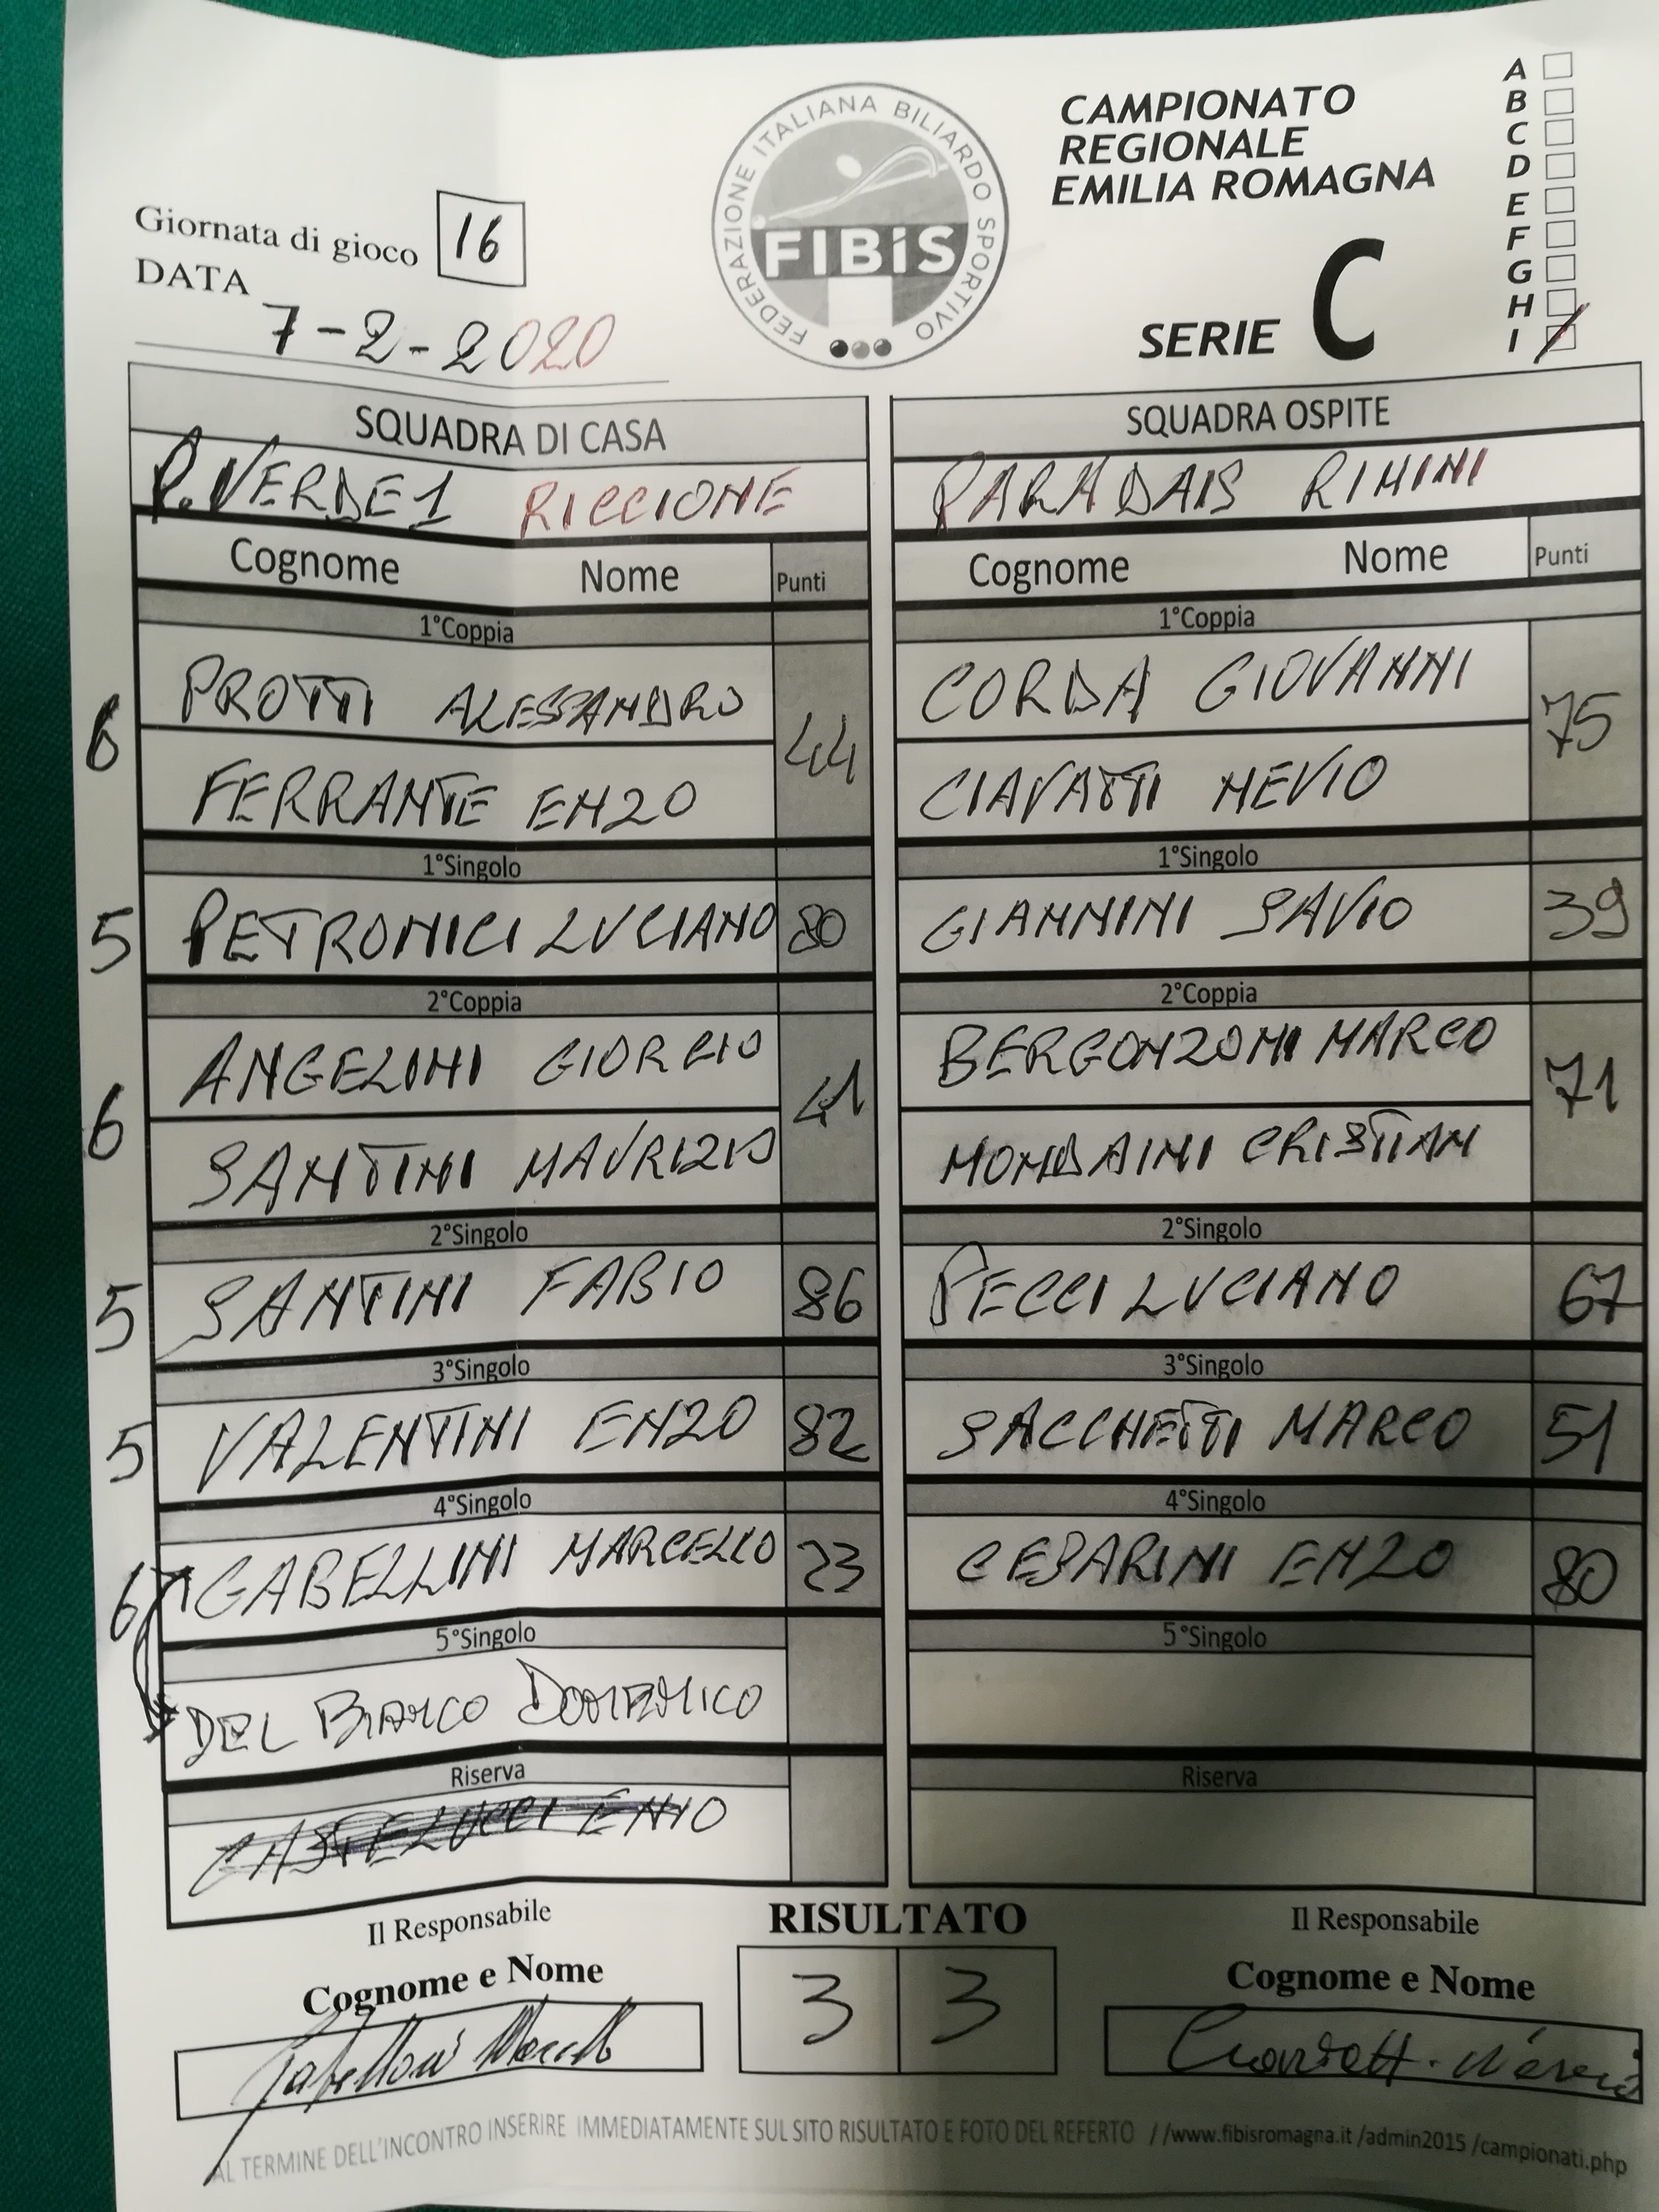 FEDERAZIONE ITALIANA BILIARDO SPORTIVO
FIBiS
CAMPIONATO
REGIONALE
EMILIA ROMAGNA
SERIE C
A
B
C
D
E
F
G
H
I
Giornata di gioco 16
DATA
7-2-2020
SQUADRA DI CASA SQUADRA OSPITE
P. VERDE 1 RICCIONE PARADAIS RIMINI
Cognome Nome Punti Cognome Nome Punti
1°Coppia 1°Coppia
PROTTI ALESSANDRO CORDA GIOVANNI
6 44 75
FERRANTE ENZO CIAVATTI NEVIO
1°Singolo 1°Singolo
5 PETRONICI LUCIANO 80 GIANNINI SAVIO 39
2°Coppia 2°Coppia
ANGELINI GIORGIO BERGONZONI MARCO
6 41 71
SANTINI MAURIZIO MONDAINI CRISTIAN
2°Singolo 2°Singolo
5 SANTINI FABIO 86 PECCI LUCIANO 67
3°Singolo 3°Singolo
5 VALENTINI ENZO 82 SACCHETTI MARCO 51
4°Singolo 4°Singolo
6 GABELLINI MARCELLO 23 CESARINI ENZO 80
5°Singolo 5°Singolo
DEL BIANCO DOMENICO
Riserva Riserva
CASTELUCCI ENIO
Il Responsabile RISULTATO Il Responsabile
Cognome e Nome 3 3 Cognome e Nome
AL TERMINE DELL'INCONTRO INSERIRE IMMEDIATAMENTE SUL SITO RISULTATO E FOTO DEL REFERTO //www.fibisromagna.it /admin2015 /campionati.php